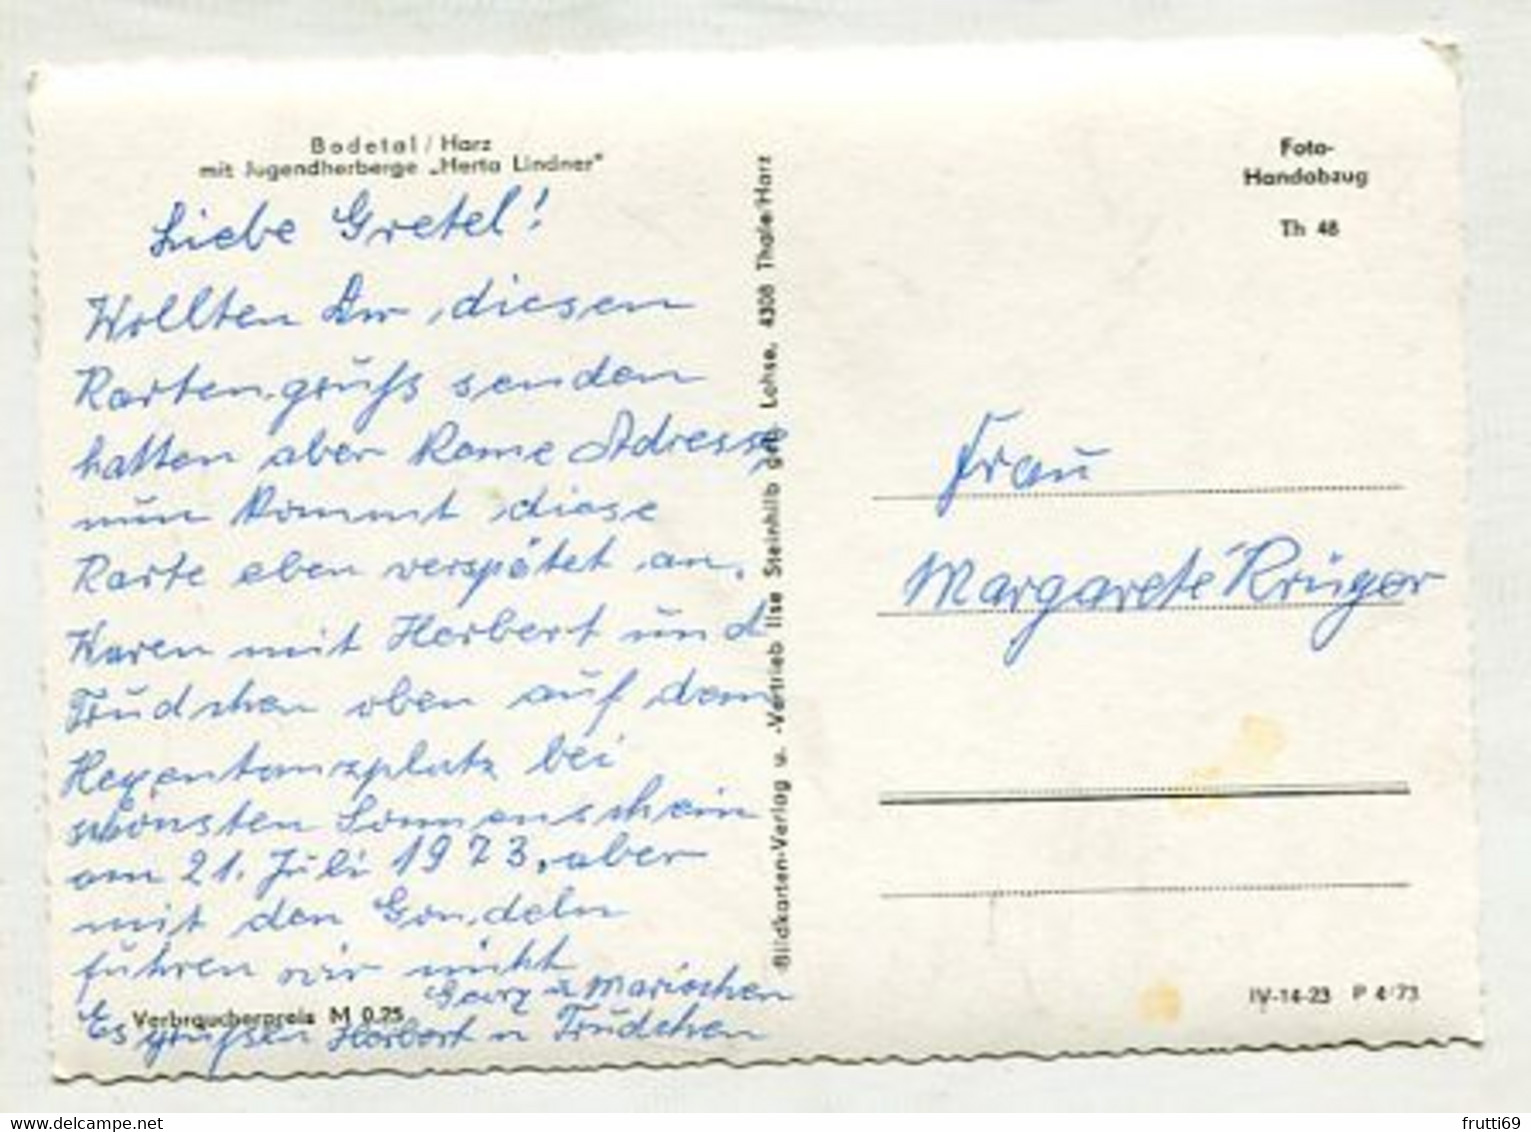 Bodetal / Harz
mit Jugendherberge „Herta Lindner"
Liebe Gretel!
Wollten Dir diesen
Kartengruß senden
hatten aber keine Adresse,
nun kommt diese
Karte eben verspätet an.
Waren mit Herbert und
Trudchen oben auf dem
Hexentanzplatz bei
schönsten Sonnenschein
am 21. Juli 1973, aber
mit den Gondeln
fuhren wir nicht
Georg u Mariechen
Verbraucherpreis M 0.25
Es grüßen Herbert u Trudchen
Bildkarten-Verlag u. -Vertrieb Ilse Steinhilb geb. Lohse, 4308 Thale/Harz
Foto-
Handabzug
Th 48
Frau
Margarete Krüger
IV-14-23 P 4/73
delcampe.net
frutti69